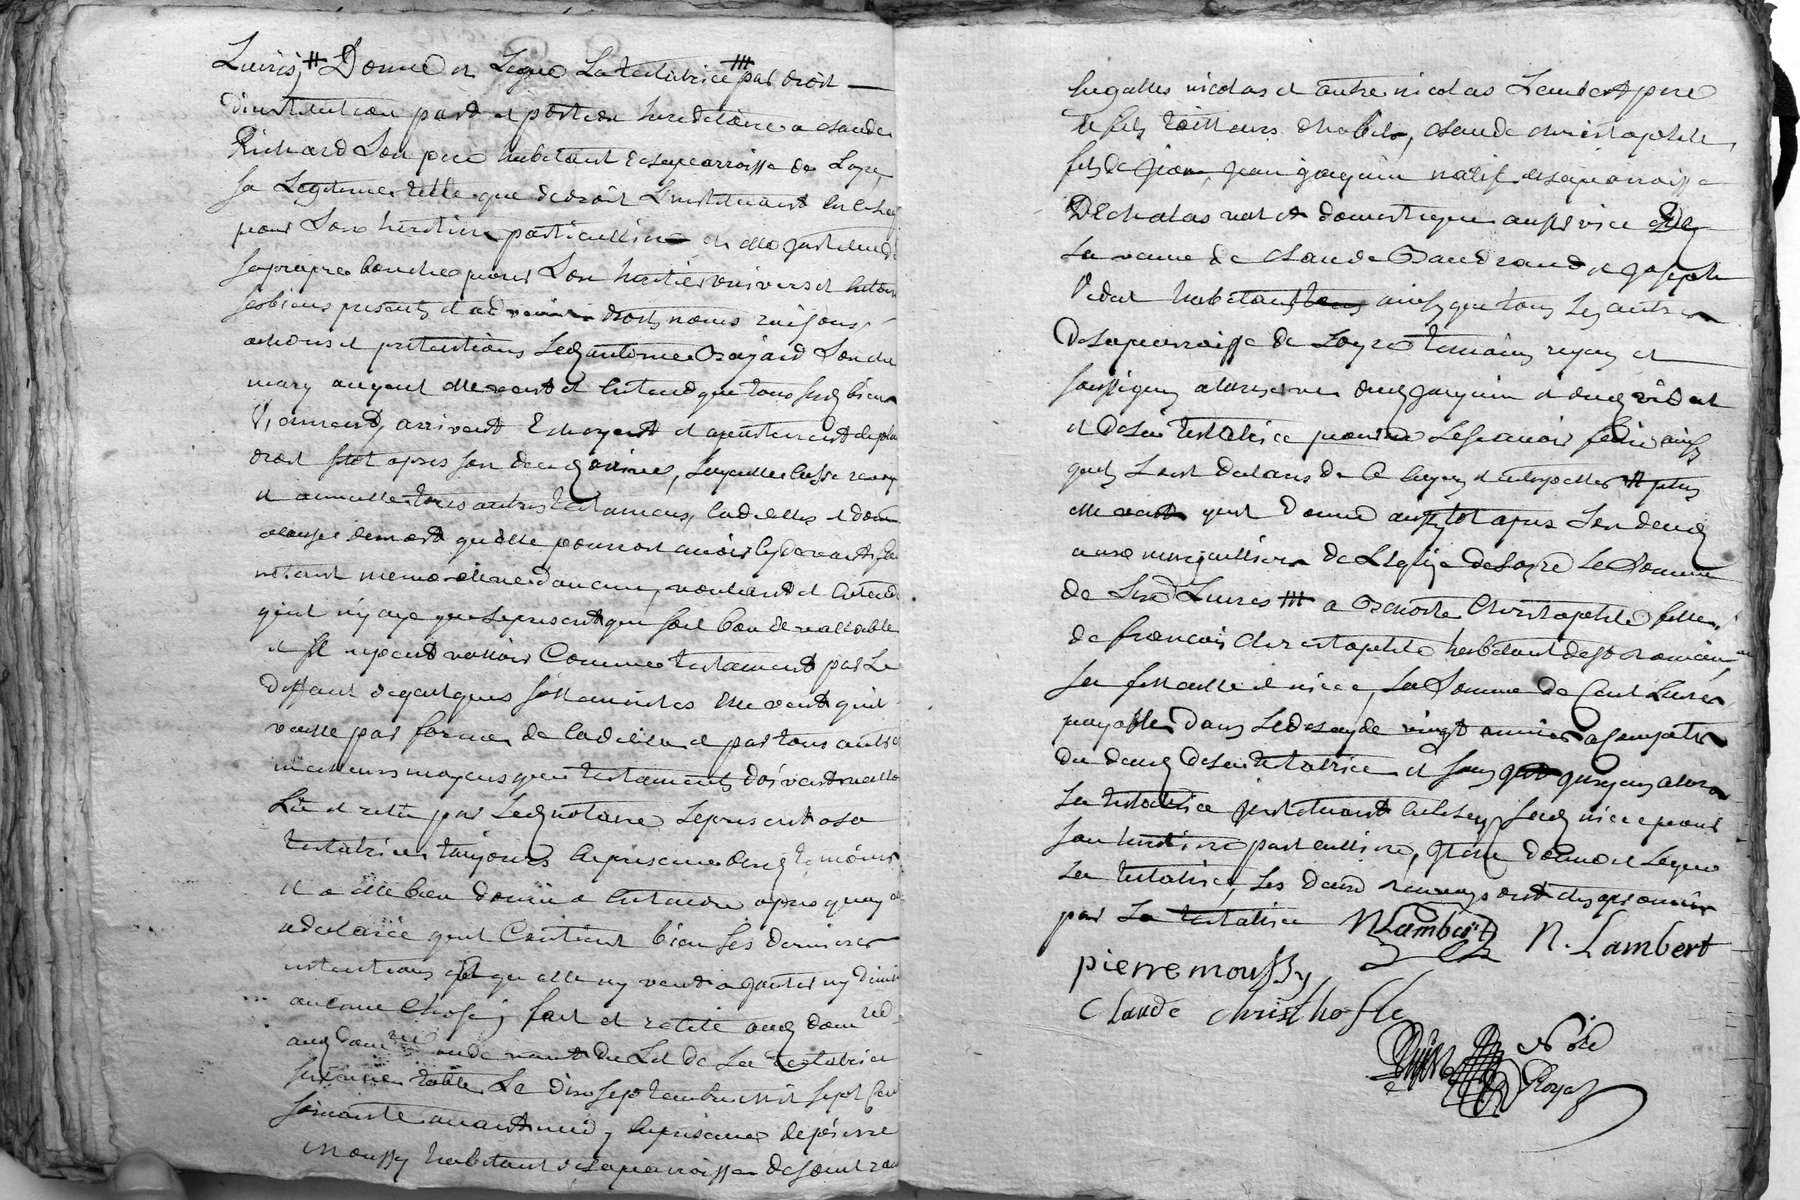 Livres, # Donne et Legue La testatrice par droit
dinstitution part et portion hereditaire a claude
Richard son pere habitant de la parroisse de Loyre
sa Legitime telle que de droit Linstituant en icelle
pour son heritier particullier et elle institue de
sa propre bouche pour son heritier universel en tous
ses biens presents et advenir droits noms raisons
actions et pretentions led antoine Bajard son cher
mary auquel elle veut et entend que tous sesd biens
viennent, arrivent Echoyent et apartiennent de plein
droit sitot apres son deces arrivé, laquelle casse revoque
et annulle tous autres testaments, codicilles et dona
a cause de mort qu'elle pourroit avoir cy devant fait
nétant memorative d'aucun, voulant et entend
quil ny aye que le present qui soit bon et vallable
et sil ne peut valloir Comme testament par Le
deffaut de quelques sollemnites elle veut quil
vaille par forme de codicille et par tous autres
meilleurs moyens que testaments doivent valloir
Lû et relû par Led notaire Le present a la
testatrice toujours en presence desd temoins
et a elle bien donné a entendre apres quoy elle
a declaré quil Contient bien ses dernieres
intentions et quelle ny veut ajouter ny diminuer
aucune chose, fait et recité aud dom
aud dom au devant du Lit de La testatrice
Le dix septembre mil sept cent
soixante avant midy en presence de pierre
moussy habitant de la parroisse de saint romain
en galles nicolas et autre nicolas Lambert pere
et fils tailleurs d'habits, claude christophle
fils de jean, jean jaquin natif de la parroisse
D'Echalas valet domestique au service de
La veuve de claude Baudrand et joseph
Vidal habitants ainsy que tous les autres
De la parroisse de Loyre temoins requis et
soussignes a la reserve dud jaquin et dud vidal
et de la testatrice pour ne le scavoir faire ainsy
quils l'ont declaré de ce enquis et interpelles # plus
elle veut quil donne aussytot apres son deces
aux marguilliers de L'Eglise de Loyre La somme
de six Livres ## a Benoite Christophle fille
de françois christophle habitant de st romain
sa fillieulle et niece, La somme de Cent Livres
payable dans Le delay de vingt années a Compter
du deces de la testatrice et sans
La testatrice instituant en icelle sad niece pour
son heritiere particulliere, donne et Legue
La testatrice, Les deux renvoys ont ete aprouvés
par La testatrice NLambert N. Lambert
pierre moussy
claude christhofle
Nore
Royal